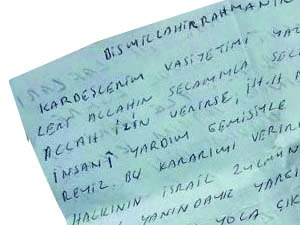 BİSMİLLAHİRRAHMANİR
KARDEŞLERİM VASİYETİMİ YAZ
LERİ ALLAHIN SELAMIYLA SELA
ALLAH İZİN VERİRSE, İH.H
İNSANİ YARDIM GEMİSİYLE
REYİZ. BU KARARIMI VERİR
HALKININ İSRAİL ZULMÜN
YANINDAYIZ YARGI
YOLA ÇIK